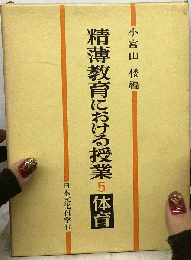 小宮山倭編
精薄教育における授業
5
体育
日本文化科学社